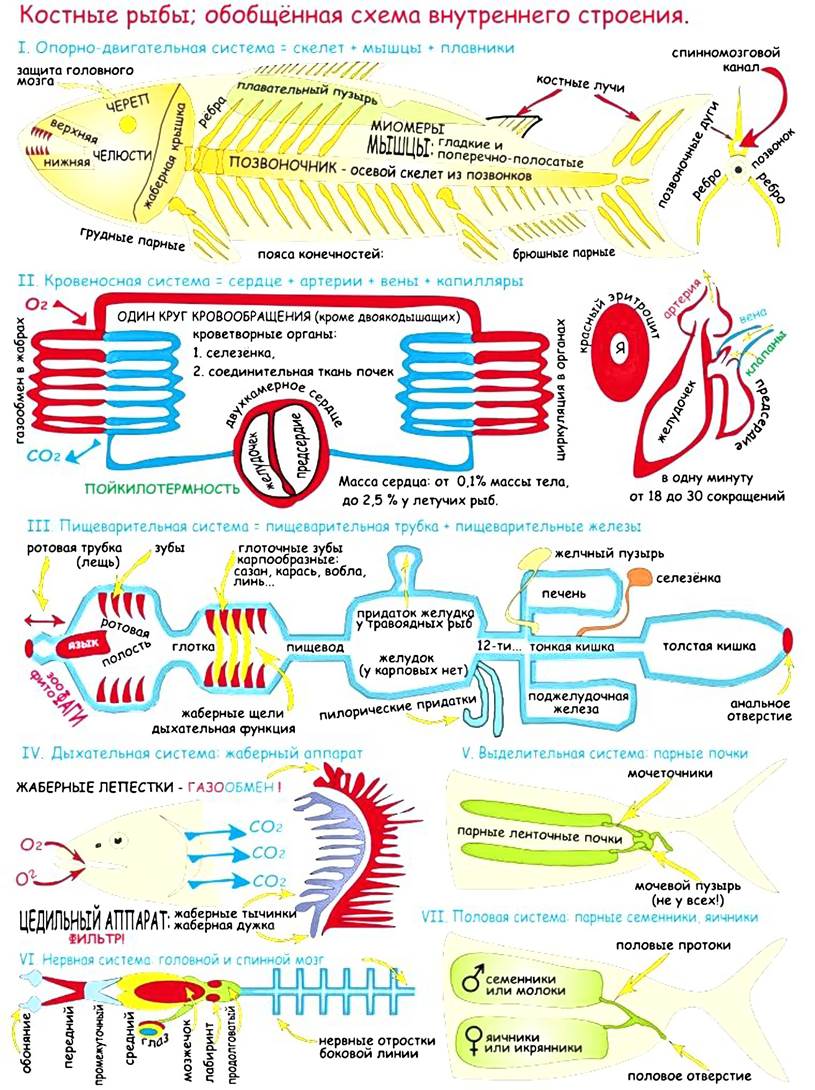 Костные рыбы; обобщённая схема внутреннего строения.
I. Опорно-двигательная система = скелет + мышцы + плавники
защита головного
мозга
ЧЕРЕП
верхняя
нижняя
ЧЕЛЮСТИ
жаберная крышка
ребра
плавательный пузырь
МИОМЕРЫ
МЫШЦЫ: гладкие и
поперечно-полосатые
ПОЗВОНОЧНИК - осевой скелет из позвонков
костные лучи
спинномозговой
канал
позвоночные дуги
позвонок
ребро
ребро
грудные парные
пояса конечностей:
брюшные парные
II. Кровеносная система = сердце + артерии + вены + капилляры
O2
газообмен в жабрах
CO2
ОДИН КРУГ КРОВООБРАЩЕНИЯ (кроме двоякодышащих)
кроветворные органы:
1. селезёнка,
2. соединительная ткань почек
двухкамерное сердце
желудочек
предсердие
ПОЙКИЛОТЕРМНОСТЬ
Масса сердца: от 0,1% массы тела,
до 2,5 % у летучих рыб.
циркуляция в органах
красный эритроцит
Я
артерия
вена
клапаны
желудочек
предсердие
в одну минуту
от 18 до 30 сокращений
III. Пищеварительная система = пищеварительная трубка + пищеварительные железы
ротовая трубка
(лещь)
зубы
глоточные зубы
карпообразные:
сазан, карась, вобла,
линь...
желчный пузырь
селезёнка
печень
придаток желудка
у травоядных рыб
язык
ротовая
полость
глотка
пищевод
желудок
(у карповых нет)
12-ти...
тонкая кишка
толстая кишка
зоо
фито
ФАГИ
жаберные щели
дыхательная функция
пилорические придатки
поджелудочная
железа
анальное
отверстие
IV. Дыхательная система: жаберный аппарат
ЖАБЕРНЫЕ ЛЕПЕСТКИ - ГАЗООБМЕН!
O2
O2
CO2
CO2
CO2
ЦЕДИЛЬНЫЙ АППАРАТ: жаберные тычинки
жаберная дужка
ФИЛЬТР!
V. Выделительная система: парные почки
мочеточники
парные ленточные почки
мочевой пузырь
(не у всех!)
VI. Нервная система: головной и спинной мозг
обоняние
передний
промежуточный
средний
глаз
мозжечок
лабиринт
продолговатый
нервные отростки
боковой линии
VII. Половая система: парные семенники, яичники
половые протоки
♂ семенники
или молоки
♀ яичники
или икрянники
половое отверстие